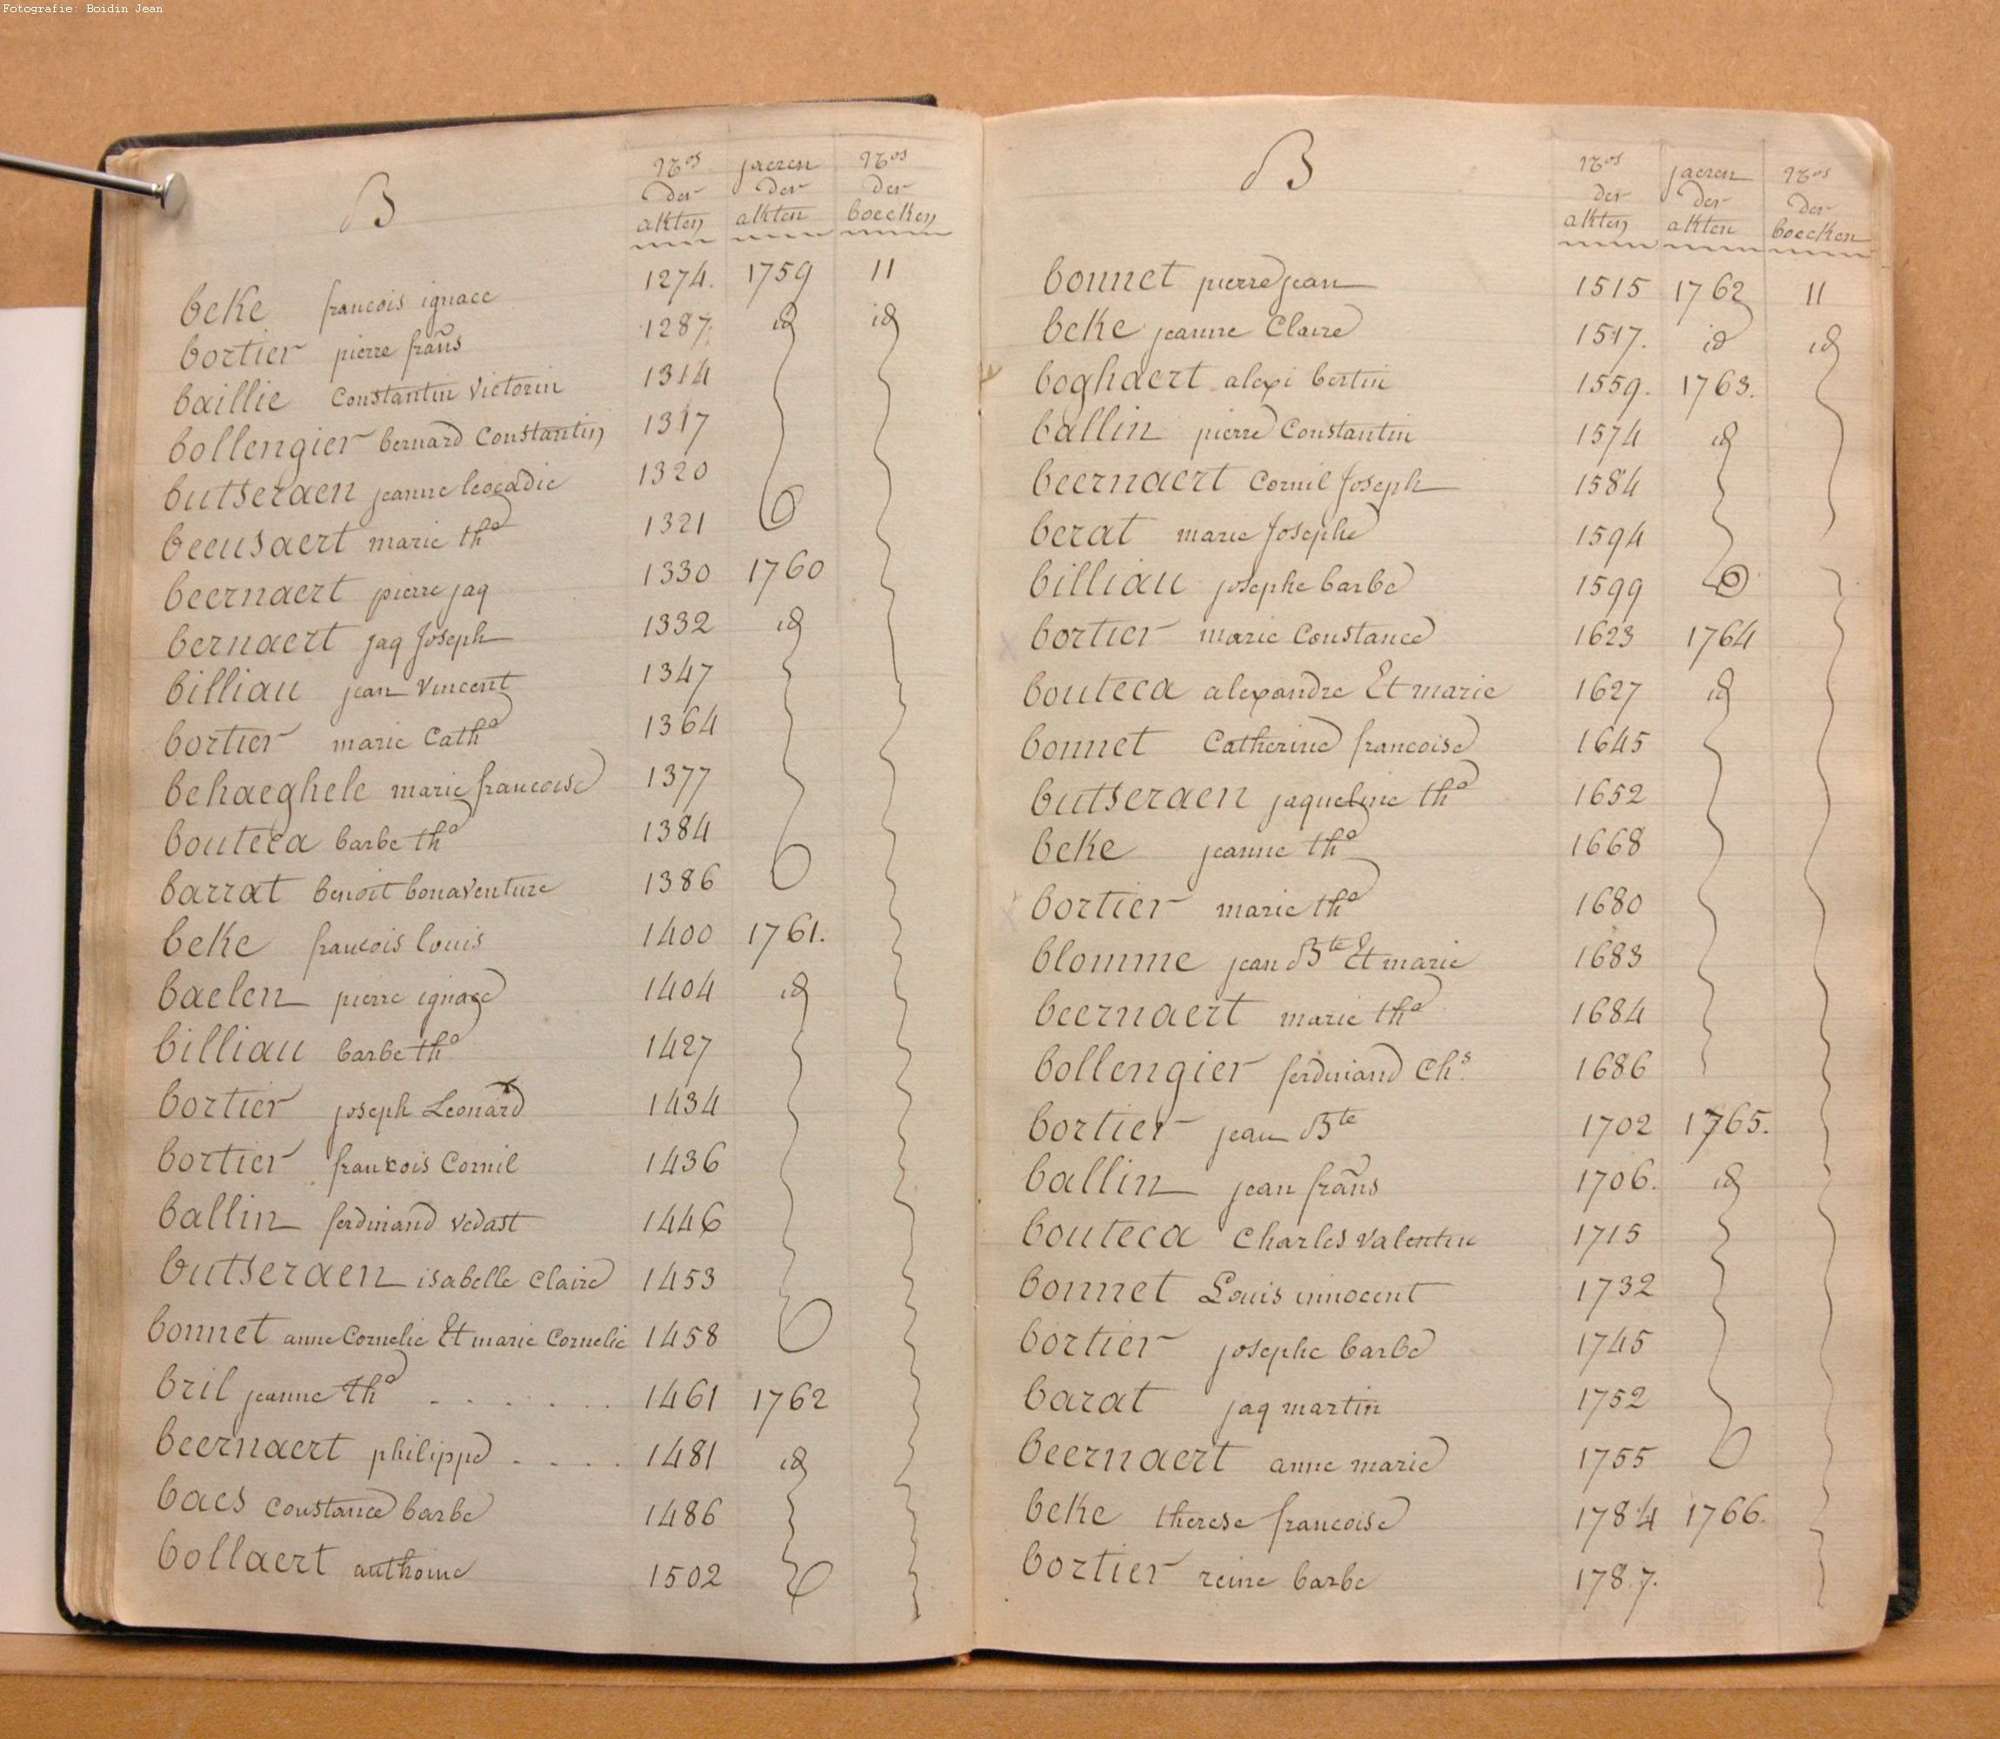 Fotografie: Boidin Jean
B
Nos der akten
jaeren der akten
Nos der boecken
beke francois ignace 1274. 1759 11
bortier pierre frañs 1287. id id
baillie Constantin Victorin 1314
bollengier bernard Constantin 1317
butseraen jeanne leocadie 1320
beeusaert marie tha 1321
beernaert pierre jaq 1330 1760
bernaert jaq Joseph 1332 id
billiau jean Vincent 1347
bortier marie Catha 1364
behaeghele marie francoise 1377
bouteca barbe tha 1384
barrat benoit bonaventure 1386
beke francois louis 1400 1761.
baelen pierre ignace 1404 id
billiau barbe tha 1427
bortier joseph Leonard 1434
bortier francois Cornil 1436
ballin ferdinand vedast 1446
butseraen isabelle Claire 1453
bonnet anne Cornelie Et marie Cornelie 1458
bril jeanne tha . . . . . . 1461 1762
beernaert philippe . . . . 1481 id
baes Constance barbe 1486
bollaert anthoine 1502
B
Nos der akten
jaeren der akten
Nos der boecken
bonnet pierre jean 1515 1762 11
beke jeanne Claire 1517. id id
boghaert alexi bertin 1559. 1763.
ballin pierre Constantin 1574 id
beernaert Cornil Joseph 1584
berat marie Josephe 1594
billiau josephe barbe 1599
bortier marie Constance 1623 1764
bouteca alexandre Et marie 1627 id
bonnet Catherine francoise 1645
butseraen jaqueline tha 1652
beke jeanne tha 1668
bortier marie tha 1680
blomme jean Bte Et marie 1683
beernaert marie tha 1684
bollengier ferdinand Chs. 1686
bortier jean Bte 1702 1765.
ballin jean frañs 1706. id
bouteca Charles Valentin 1715
bonnet Louis innocent 1732
bortier josephe barbe 1745
barat jaq martin 1752
beernaert anne marie 1755
beke therese francoise 1784 1766.
bortier reine barbe 1787.